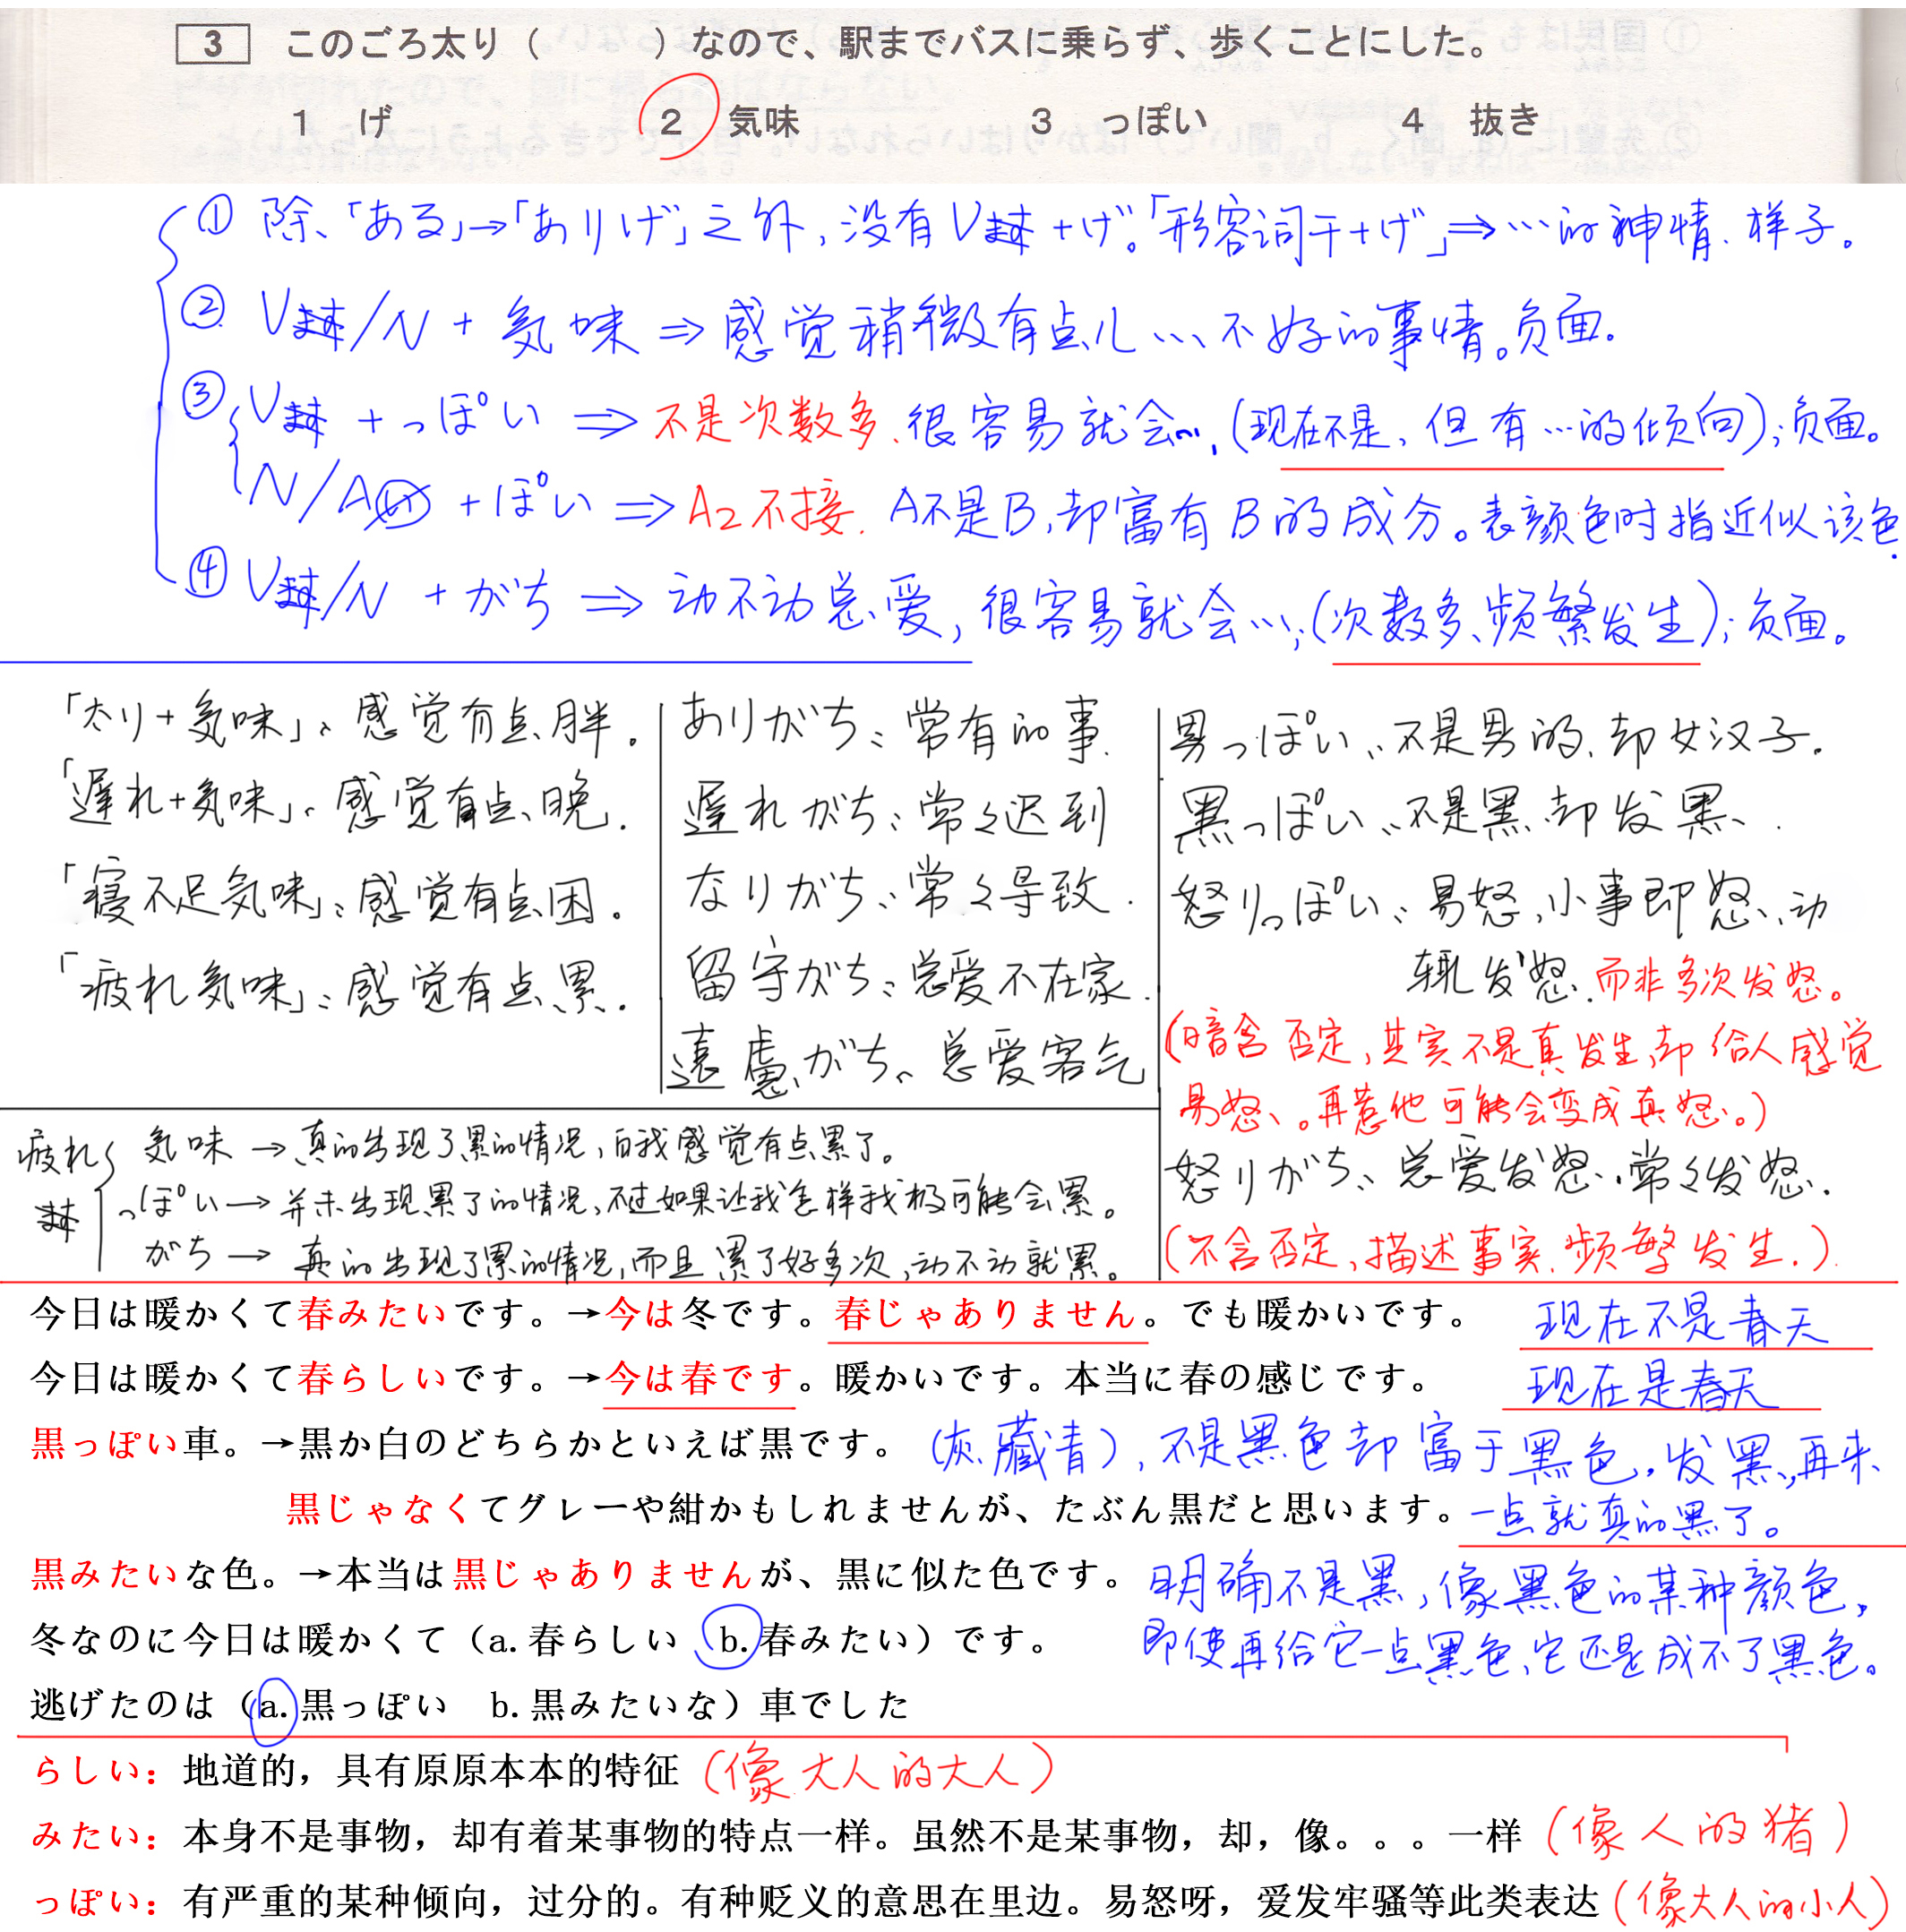 3 このごろ太り（　　　）なので、駅までバスに乗らず、歩くことにした。
1 げ　2 気味　3 っぽい　4 抜き
① 除、「ある」→「ありげ」之外，没有Vます+げ。「形容词干+げ」⇒…的神情、样子。
② Vます/N + 気味 ⇒ 感觉稍微有点儿…不好的事情。负面。
③ Vます + っぽい ⇒ 不是次数多、很容易就会…，(现在不是，但有…的倾向)；负面。
N/Aい + ぽい ⇒ A2不接. A不是B，却富有B的成分。表颜色时指近似该色.
④ Vます/N + がち ⇒ 动不动总爱，很容易就会…；(次数多、频繁发生)；负面。
「太り+気味」：感觉有点胖。
「遅れ+気味」：感觉有点晚.
「寝不足気味」：感觉有点困。
「疲れ気味」：感觉有点累.
ありがち：常有的事.
遅れがち：常々迟到
なりがち：常々导致.
留守がち：总爱不在家.
遠慮がち：总爱客气
男っぽい：不是男的，却女汉子.
黒っぽい：不是黑，却发黑.
怒りっぽい：易怒，小事即怒，动
辄发怒.而非多次发怒。
(暗含否定，其实不是真发生，却给人感觉
易怒。再惹他可能会变成真怒。)
怒りがち：总爱发怒，常々发怒.
(不含否定，描述事实，频繁发生.)
疲れます
気味 → 真的出现了累的情况，自我感觉有点累了。
っぽい → 并未出现累了的情况，不过如果让我怎样我极可能会累。
がち → 真的出现了累的情况，而且累了好多次，动不动就累。
今日は暖かくて春みたいです。→今は冬です。春じゃありません。でも暖かいです。 现在不是春天
今日は暖かくて春らしいです。→今は春です。暖かいです。本当に春の感じです。 现在是春天
黒っぽい車。→黒か白のどちらかといえば黒です。 (灰、藏青)，不是黑色却富于黑色，发黑，再来
黒じゃなくてグレーや紺かもしれませんが、たぶん黒だと思います。 一点就真的黑了。
黒みたいな色。→本当は黒じゃありませんが、黒に似た色です。 明确不是黑，像黑色的某种颜色，
冬なのに今日は暖かくて（a. 春らしい　b. 春みたい）です。 即使再给它一点黑色，它还是成不了黑色。
逃げたのは（a. 黒っぽい　b. 黒みたいな）車でした
らしい：地道的，具有原原本本的特征 (像大人的大人)
みたい：本身不是事物，却有着某事物的特点一样。虽然不是某事物，却，像。。。一样 (像人的猪)
っぽい：有严重的某种倾向，过分的。有种贬义的意思在里边。易怒呀，爱发牢骚等此类表达 (像大人的小人)